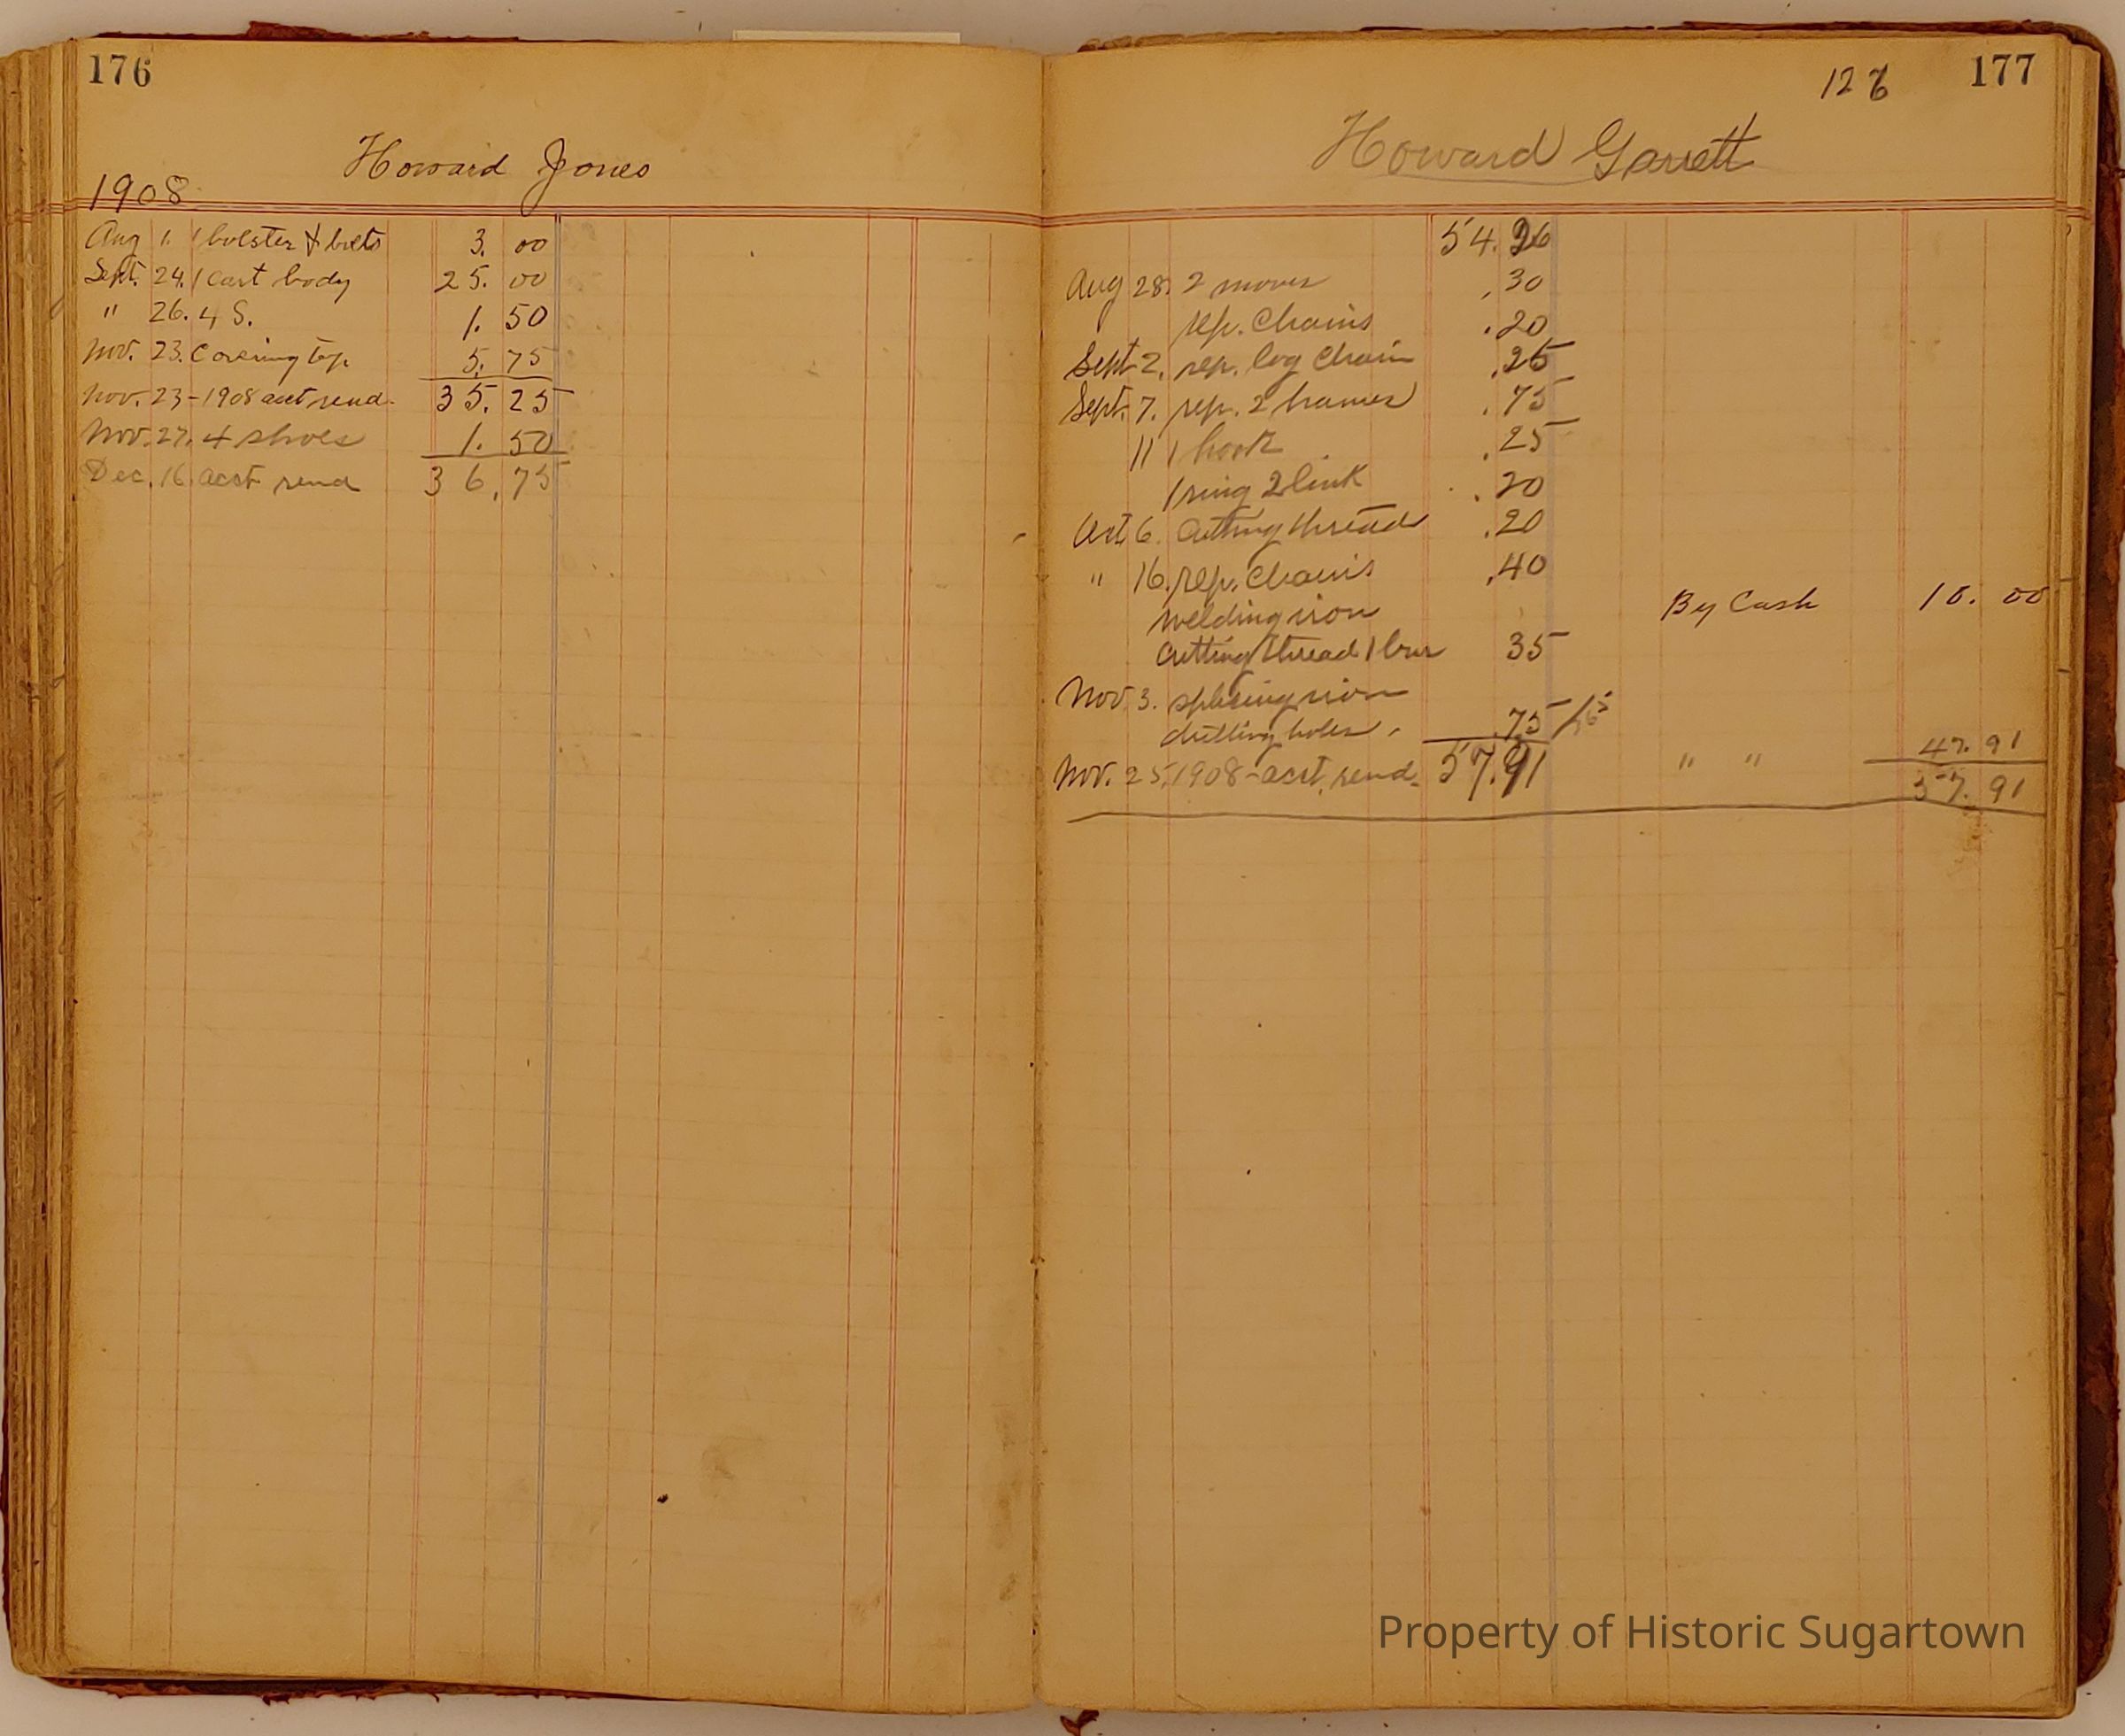 176
Howard Jones
1908
Aug 1. 1 bolster & bolts 3. 00
Sept. 24. 1 Cart body 25. 00
" 26. 4 S. 1. 50
Nov. 23. Covering top 5. 75
Nov. 23 - 1908 acct rend. 35. 25
Nov. 27. 4 shoes 1. 50
Dec. 16. acct rend 36. 75
126 177
Howard Garrett
54. 26
Aug 28. 2 .30
rep. Chains .20
Sept 2. rep. log Chain .25
Sept. 7. rep. 2 hames .75
11 1 hook .25
1 ring 2 link .20
Oct. 6. Cutting thread .20
" 16. rep. Chains .40
welding iron By Cash 10. 00
Cutting thread 1 bur 35
Nov 3. splicing iron
drilling holes .75
Nov. 25. 1908 - acct. rend. 57.91 " " 47. 91
57. 91
Property of Historic Sugartown